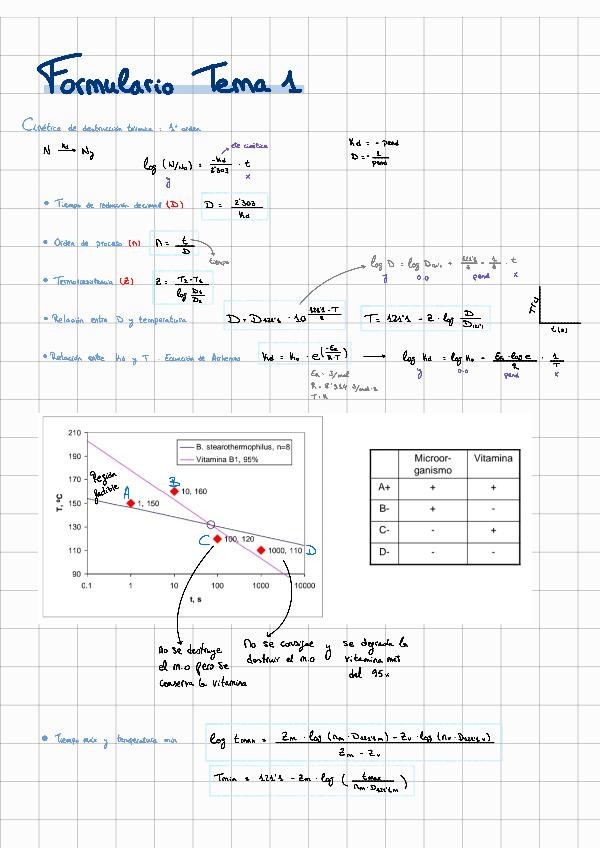 Formulario Tema 1
Cinética de destrucción térmica : 1er orden
N Kd→ N2
log (N/N0) = -Kd/2'303 · t
de cinética
y x
Kd = - pend
D = - 1/pend
• Tiempo de reducción decimal (D) D = 2'303/Kd
• Orden de proceso (n) n = t/D
tiempo
• Termorresistencia (Z) Z = T2-T1 / log D1/D2
y o.o pend x
• Relación entre D y temperatura D = D121'1 · 10^(121'1 - T / z) T = 121'1 - z · log D/D121'1
t (s)
• Relación entre Kd y T. Ecuación de Arrhenius Kd = K0 · e^(-Ea/RT) → log Kd = log K0 - Ea·log e/R · 1/T
y o.o pend x
Ea = J/mol
R = 8'314 J/mol·K
T = K
210
190
170
150
130
110
90
T, ºC
0.1 1 10 100 1000 10000
t, s
B. stearothermophilus, n=8
Vitamina B1, 95%
Región factible
A
1, 150
B
10, 160
C
100, 120
1000, 110
D
Microor-ganismo Vitamina
A+ + +
B- + -
C- - +
D- - -
No se destruye
el m.o pero se
conserva la vitamina
No se consigue y se degrada la
destruir el m.o vitamina más
del 95%
• Tiempo máx y temperatura mín log tmax = Zm · log (nm · D121'1m) - Zv · log (nv · D121'1v) / Zm - Zv
Tmin = 121'1 - Zm · log ( tmax / nm · D121'1m )